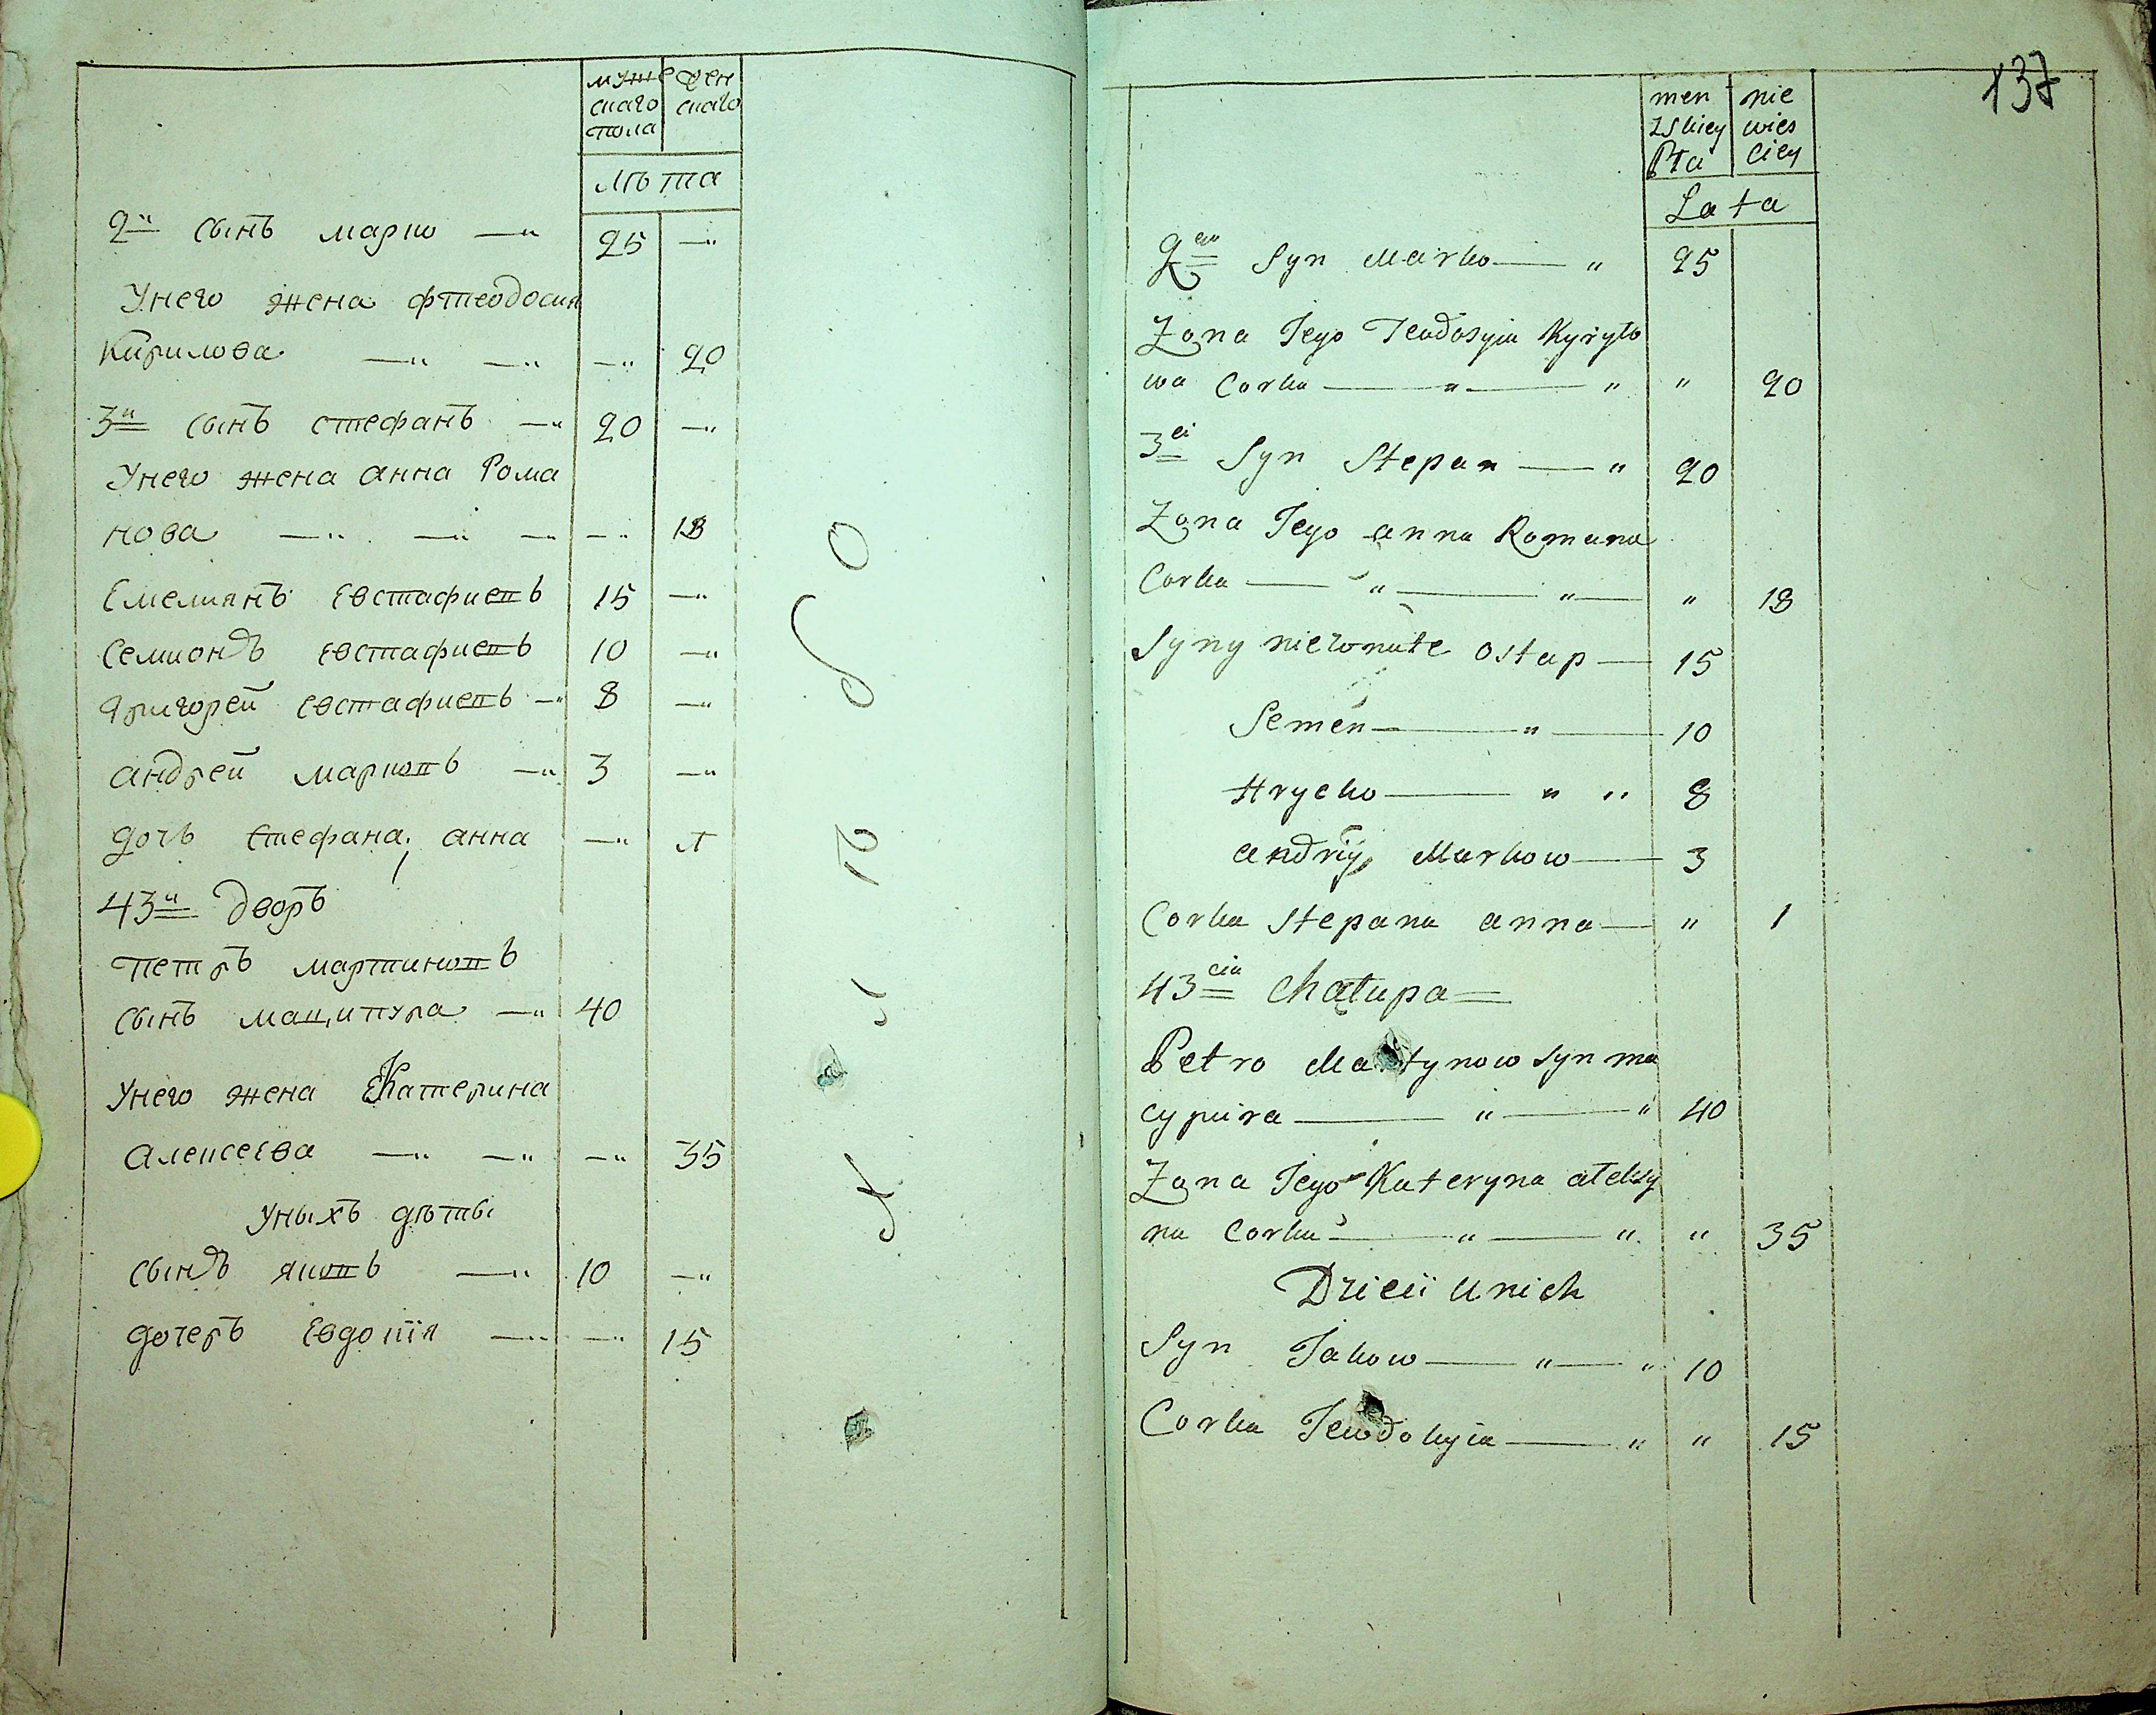 муже жен
скаго скаго
пола
лѣта
2й сынъ марко —„ 25 —„
Унего жена фтеодосия
Кирилова —„ —„ —„ 20
3й сынъ стефанъ —„ 20 —„
Унего жена анна Рома
нова —„ —„ —„ —„ 18
Емелиянъ Евстафиевъ 15 —„
Семионъ Евстафиевъ 10 —„
григорей Евстафиевъ —„ 8 —„
андрей марковъ —„ 3 —„
дочь Стефана, анна —„ 1
43й дворъ
петръ мартиновъ
сынъ маципура —„ 40
Унего жена Екатерина
алексеева —„ —„ —„ 35
Уныхъ дѣты
сынъ яковъ —„ 10 —„
дочеръ Евдокія —„ —„ 15
137
men nie
zskiey wies
Pła ciey
Lata
2gi Syn Marko — „ 25
Zona Jego Teodosyia Kyryło
wa Corka — „ — „ „ 20
3ci Syn Stepan — „ 20
Zona Jego anna Romana
Corka — „ — „ — „ 18
Syny niezonate Ostap — 15
Semen — „ — 10
Hrycko — „ „ 8
andrij Markow — 3
Corka Stepana anna — „ 1
43cia Chałupa
Petro Martynow syn ma
cypura — „ — „ 40
Zona Jego Kateryna ałexy
na Corka — „ — „ „ 35
Dzieci Unich
Syn Jakow — „ — „ 10
Corka Jewdokyia — „ „ 15